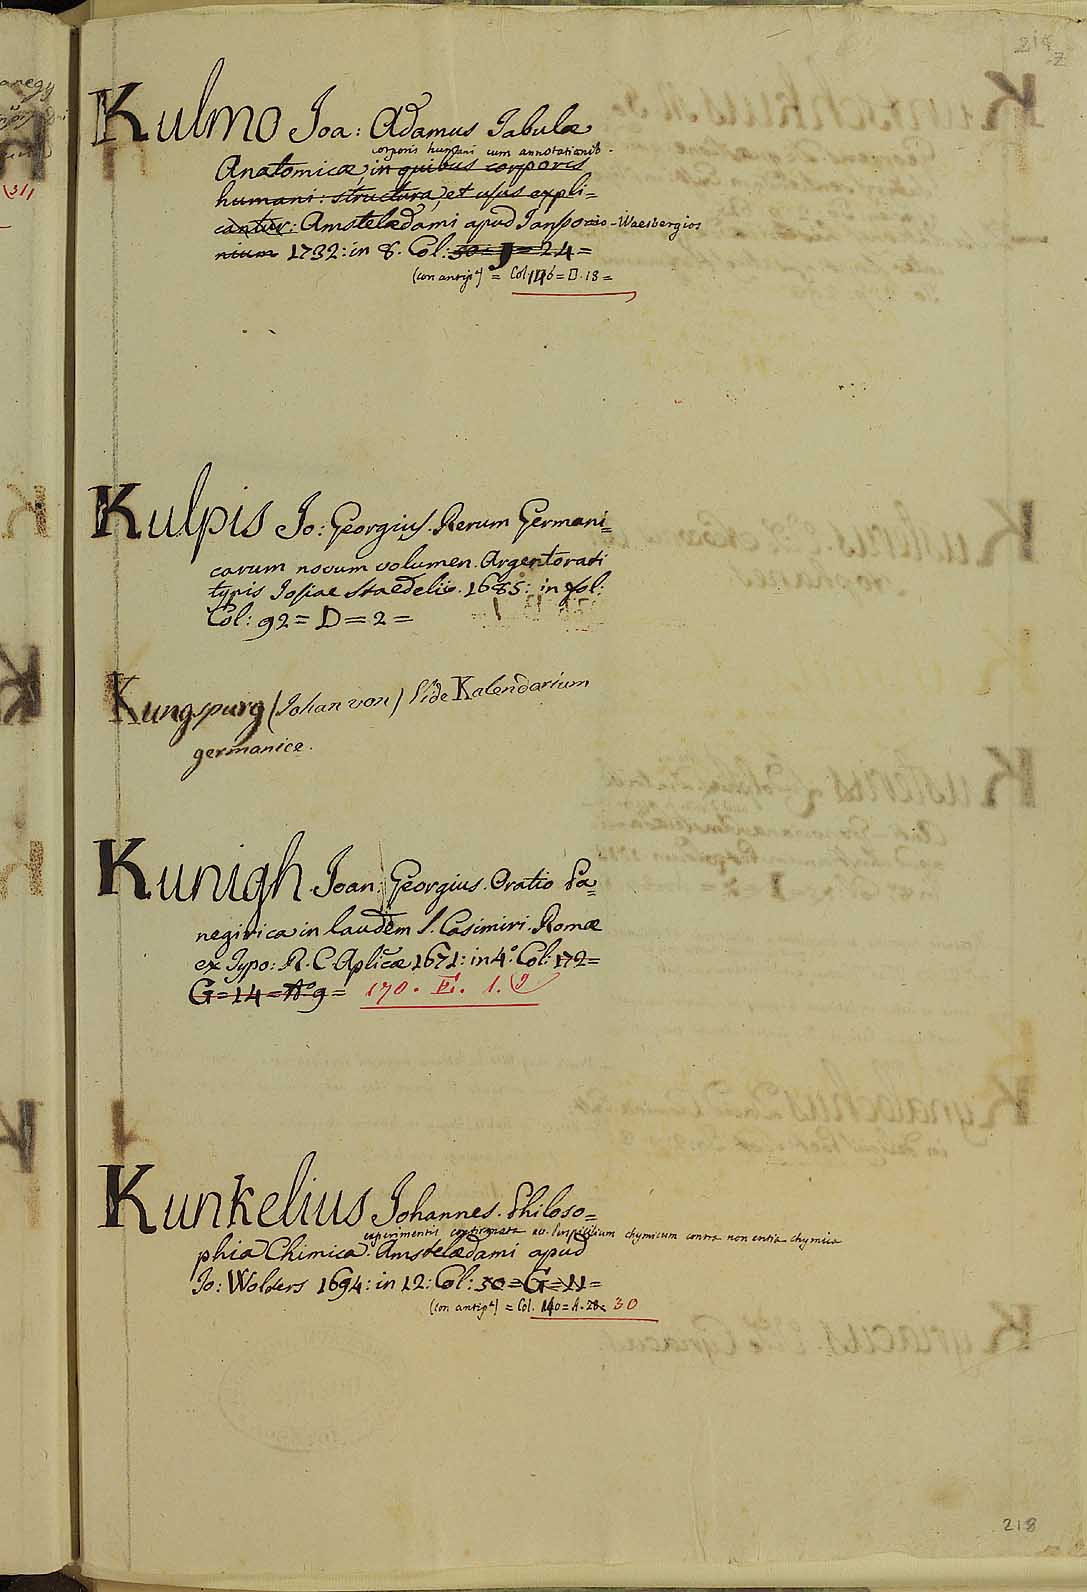 214
2
Kulmo Joa: Adamus Tabulæ
corporis humani cum annotationib.
Anatomicæ, in quibus corporis
humani: structura, et usus expli=
cantur: Amstelædami apud Jansonio-Waesbergios
nium 1732: in 8. Col: 50= J = 24=
(con antip.ª) = Col 146= D. 18=
Kulpis Jo: Georgius. Rerum Germani=
carum novum volumen. Argentorati
typis Josiae Staedelii. 1685: in fol:
Col: 92= D= 2=
Kungspurg (Johan von) Vide Kalendarium
germanice.
Kunigh Joan: Georgius. Oratio Pa=
negirica in laudem S. Casimiri. Romæ
ex Typo: R. C. Aplicæ 1671: in 4.º Col: 172=
G= 14= Aº 9= 170. E. 1. (9
Kunkelius Johannes. Philoso=
experimentis confirmata acc. Perspicilium chymicum contra non entia chymica
phia Chimica. Amstelædami apud
Jo: Wolders 1694: in 12: Col: 50= G= 11=
(con antip.ª) = Col. 140= A. 28. 30
218